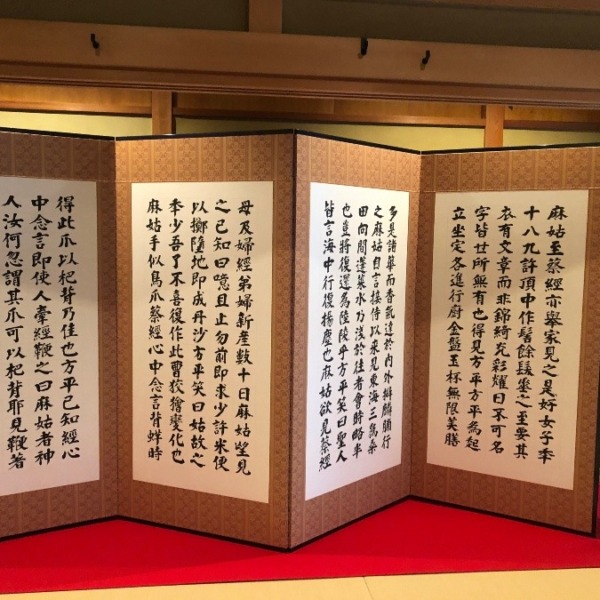 麻姑至蔡經亦舉家見之是好女子年
十八九許頂中作髻餘髮垂之至要其
衣有文章而非錦綺光彩耀日不可名
字皆世所無有也得見方平方平為起
立坐定各進行廚金盤玉杯無限美膳
多是諸華而香氣達於內外擗麟脯行
之麻姑自言接侍以來見東海三為桑
田向間蓬萊水乃淺於往者會時略半
也豈將復還為陸陵乎方平笑曰聖人
皆言海中行復揚塵也麻姑欲見蔡經
母及婦經弟婦新產數十日麻姑望見
之已知曰噫且止勿前即求少許米便
以擲墮地即成丹沙方平笑曰姑故之
年少吾了不喜復作此曹狡獪變化也
麻姑手似鳥爪蔡經心中念言背蛘時
得此爪以杷背乃佳也方平已知經心
中念言即使人牽經鞭之曰麻姑者神
人汝何忽謂其爪可以杷背耶見鞭著